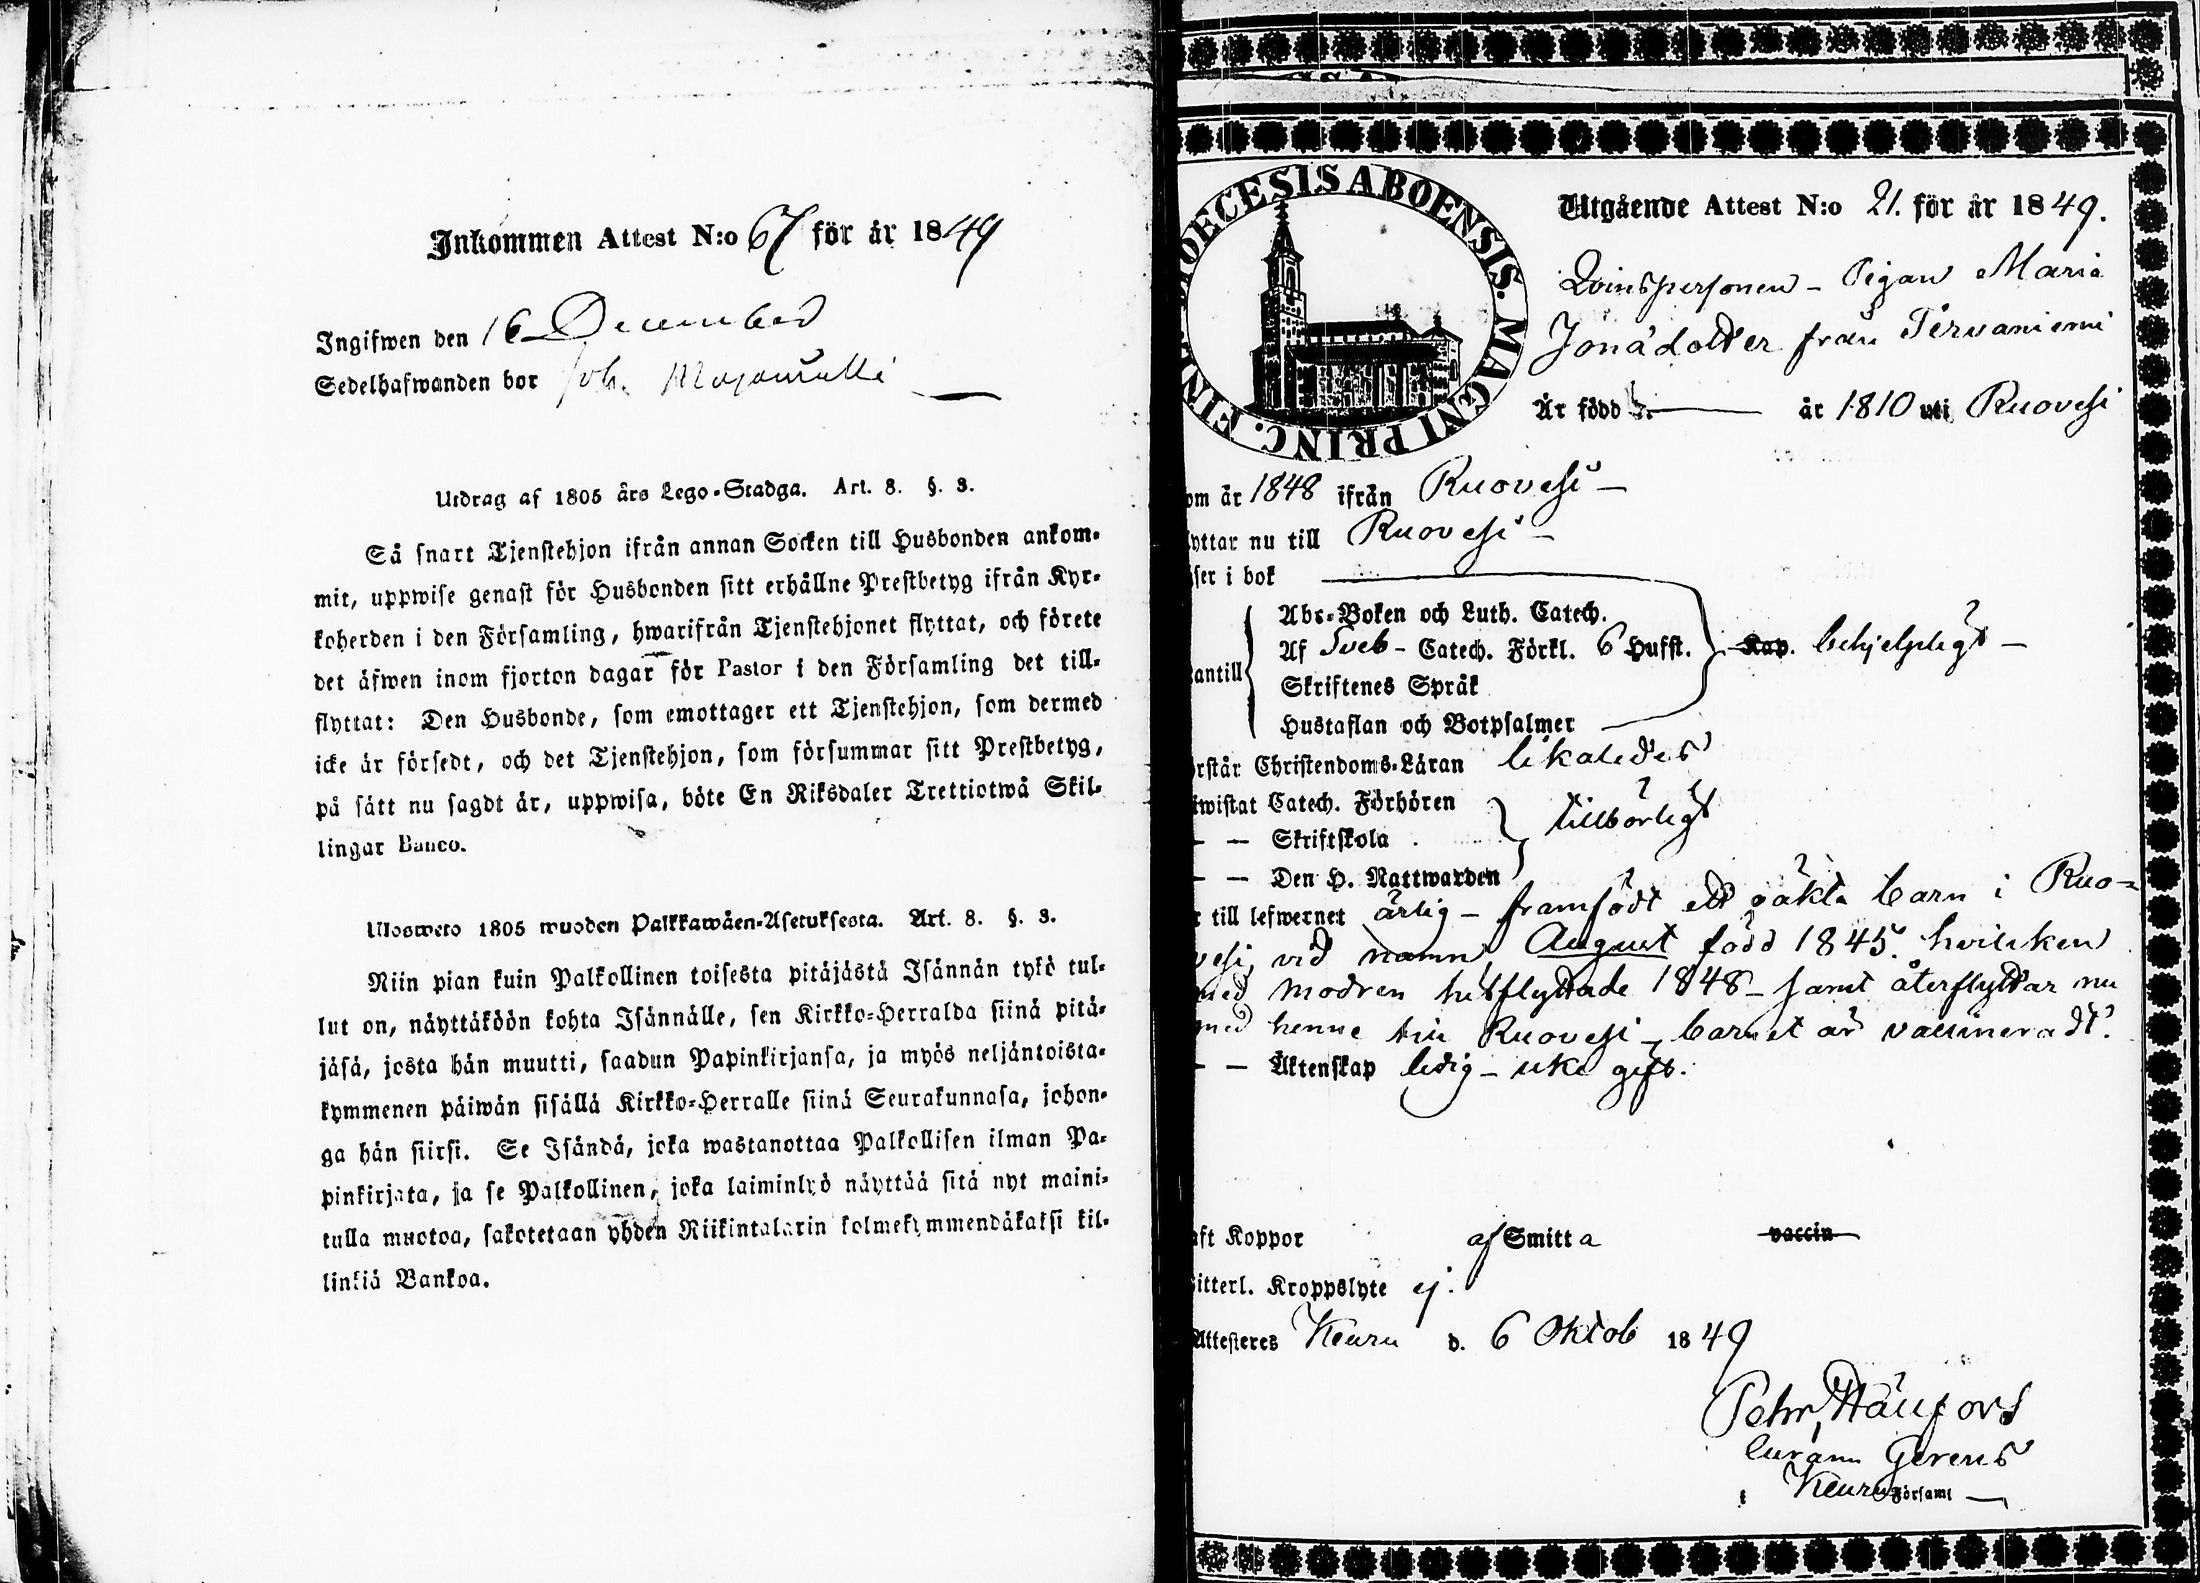 Inkommen Attest N:o 67 för år 1849
Ingifwen den 16 December
Sedelhafwanden bor Joh.
Utdrag af 1805 års Lego-Stadga. Art. 8. §. 3.
Så snart Tjenstehjon ifrån annan Socken till Husbonden ankom-
mit, uppwise genast för Husbonden sitt erhållne Prestbetyg ifrån Kyr-
koherden i den Församling, hwarifrån Tjenstehjonet flyttat, och förete
det äfwen inom fjorton dagar för Pastor i den Församling det till-
flyttat: Den Husbonde, som emottager ett Tjenstehjon, som dermed
icke är försedt, och det Tjenstehjon, som försummar sitt Prestbetyg,
på sätt nu sagdt är, uppwisa, böte En Riksdaler Trettiotwå Skil-
lingar Banco.
Ulosweto 1805 wuoden Palkkawäen-Asetuksesta. Art. 8. §. 3.
Niin pian kuin Palkollinen toisesta pitäjästä Isännän tykö tul-
lut on, näyttäköön kohta Isännälle, sen Kirkko-Herralda siinä pitä-
jäsä, josta hän muutti, saadun Papinkirjansa, ja myös neljäntoista-
kymmenen päiwän sisällä Kirkko-Herralle siinä Seurakunnasa, johon-
ga hän siirsi. Se Isändä, joka wastanottaa Palkollisen ilman Pa-
pinkirjata, ja se Palkollinen, joka laiminlyö näyttää sitä nyt maini-
tulla muotoa, sakotetaan yhden Riikintalarin kolmekymmendäkaksi kil-
linkiä Bankoa.
DIOECESIS ABOENSIS. MAGNI PRINC. FINL.
Utgående Attest N:o 21. för år 1849.
Qvinspersonen - Pigan Maria
Jonädotter från Tervaniemi
Är född d. — år 1810 uti Ruovesi
om år 1848 ifrån Ruovesi —
lyttar nu till Ruovesi —
ser i bok
Abs-Boken och Luth. Catech.
Af Sveb- Catech. Förkl. 6 Hufst. Kap. behjelpligt —
antill
Skriftenes Språk
Hustaflan och Botpsalmer
rstår Christendoms-Läran likaledes
iwistat Catech. Förhören
— — Skriftskola tillbörligt
— — Den H. Nattwarden
r till lefwernet ärlig - framfödt ett oäkta barn i Ruo-
vesi, vid namn August född 1845. hvilken
med modren hitflyttade 1848 - samt återflyttar nu
med henne till Ruovesi - barnet är vaccineradt.
— — Äktenskap ledig - icke gift.
aft Koppor af Smitta vaccin
itterl. Kroppslyte ej.
Attesteres Keuru d. 6 Oktob 1849
Pehr
Curam Gerens
i Keuru Församl